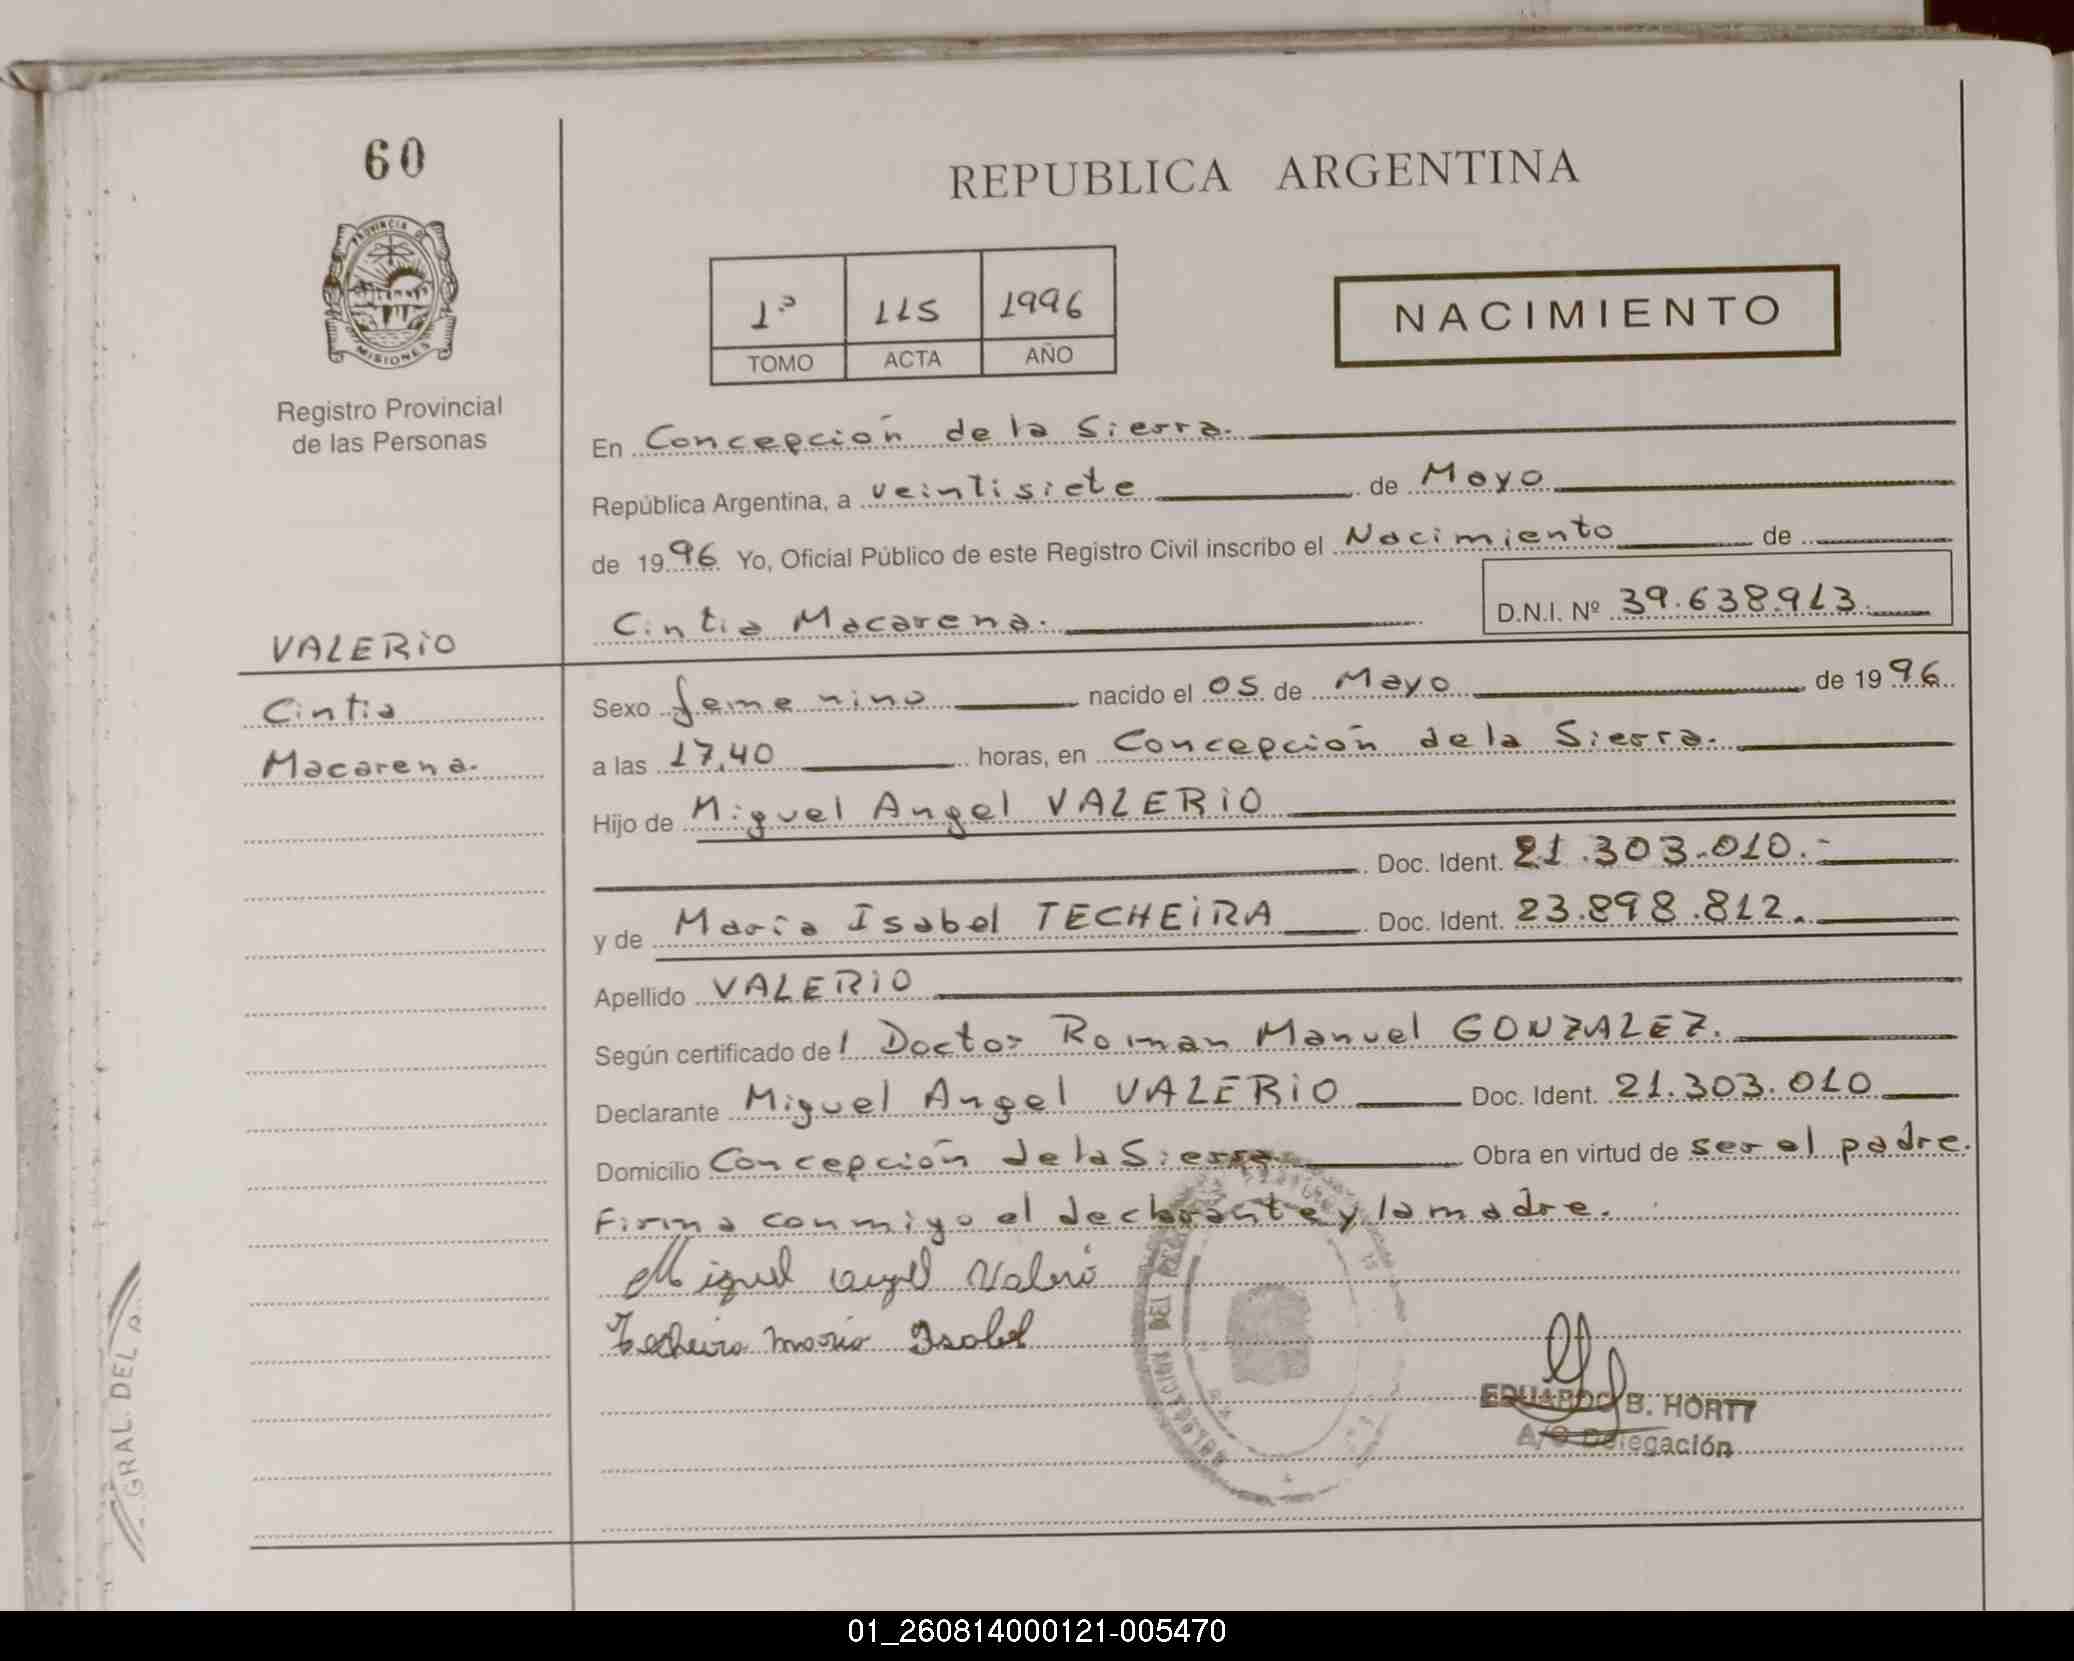 60
REPUBLICA ARGENTINA
PROVINCIA DE
MISIONES
1º 115 1996
TOMO ACTA AÑO
NACIMIENTO
Registro Provincial
de las Personas
En Concepción de la Sierra.
República Argentina, a veintisiete de Mayo
de 1996 Yo, Oficial Público de este Registro Civil inscribo el Nacimiento de
Cintia Macarena. D.N.I. Nº 39.638.913
VALERiO
Cintia
Macarena.
Sexo femenino nacido el 05 de Mayo de 1996
a las 17,40 horas, en Concepción de la Sierra.
Hijo de Miguel Angel VALERiO
Doc. Ident. 21.303.010.-
y de Maria Isabel TECHEiRA Doc. Ident. 23.898.812.
Apellido VALERiO
Según certificado del Doctor Roman Manuel GONZALEZ.
Declarante Miguel Angel VALERiO Doc. Ident. 21.303.010
Domicilio Concepción de la Sierra Obra en virtud de ser el padre.
Firma conmigo el declarante y la madre.
Miguel angel Valerio
Techeira Maria Isabel
EDUARDO B. HORTT
A/C Delegación
GRAL. DEL
01_260814000121-005470